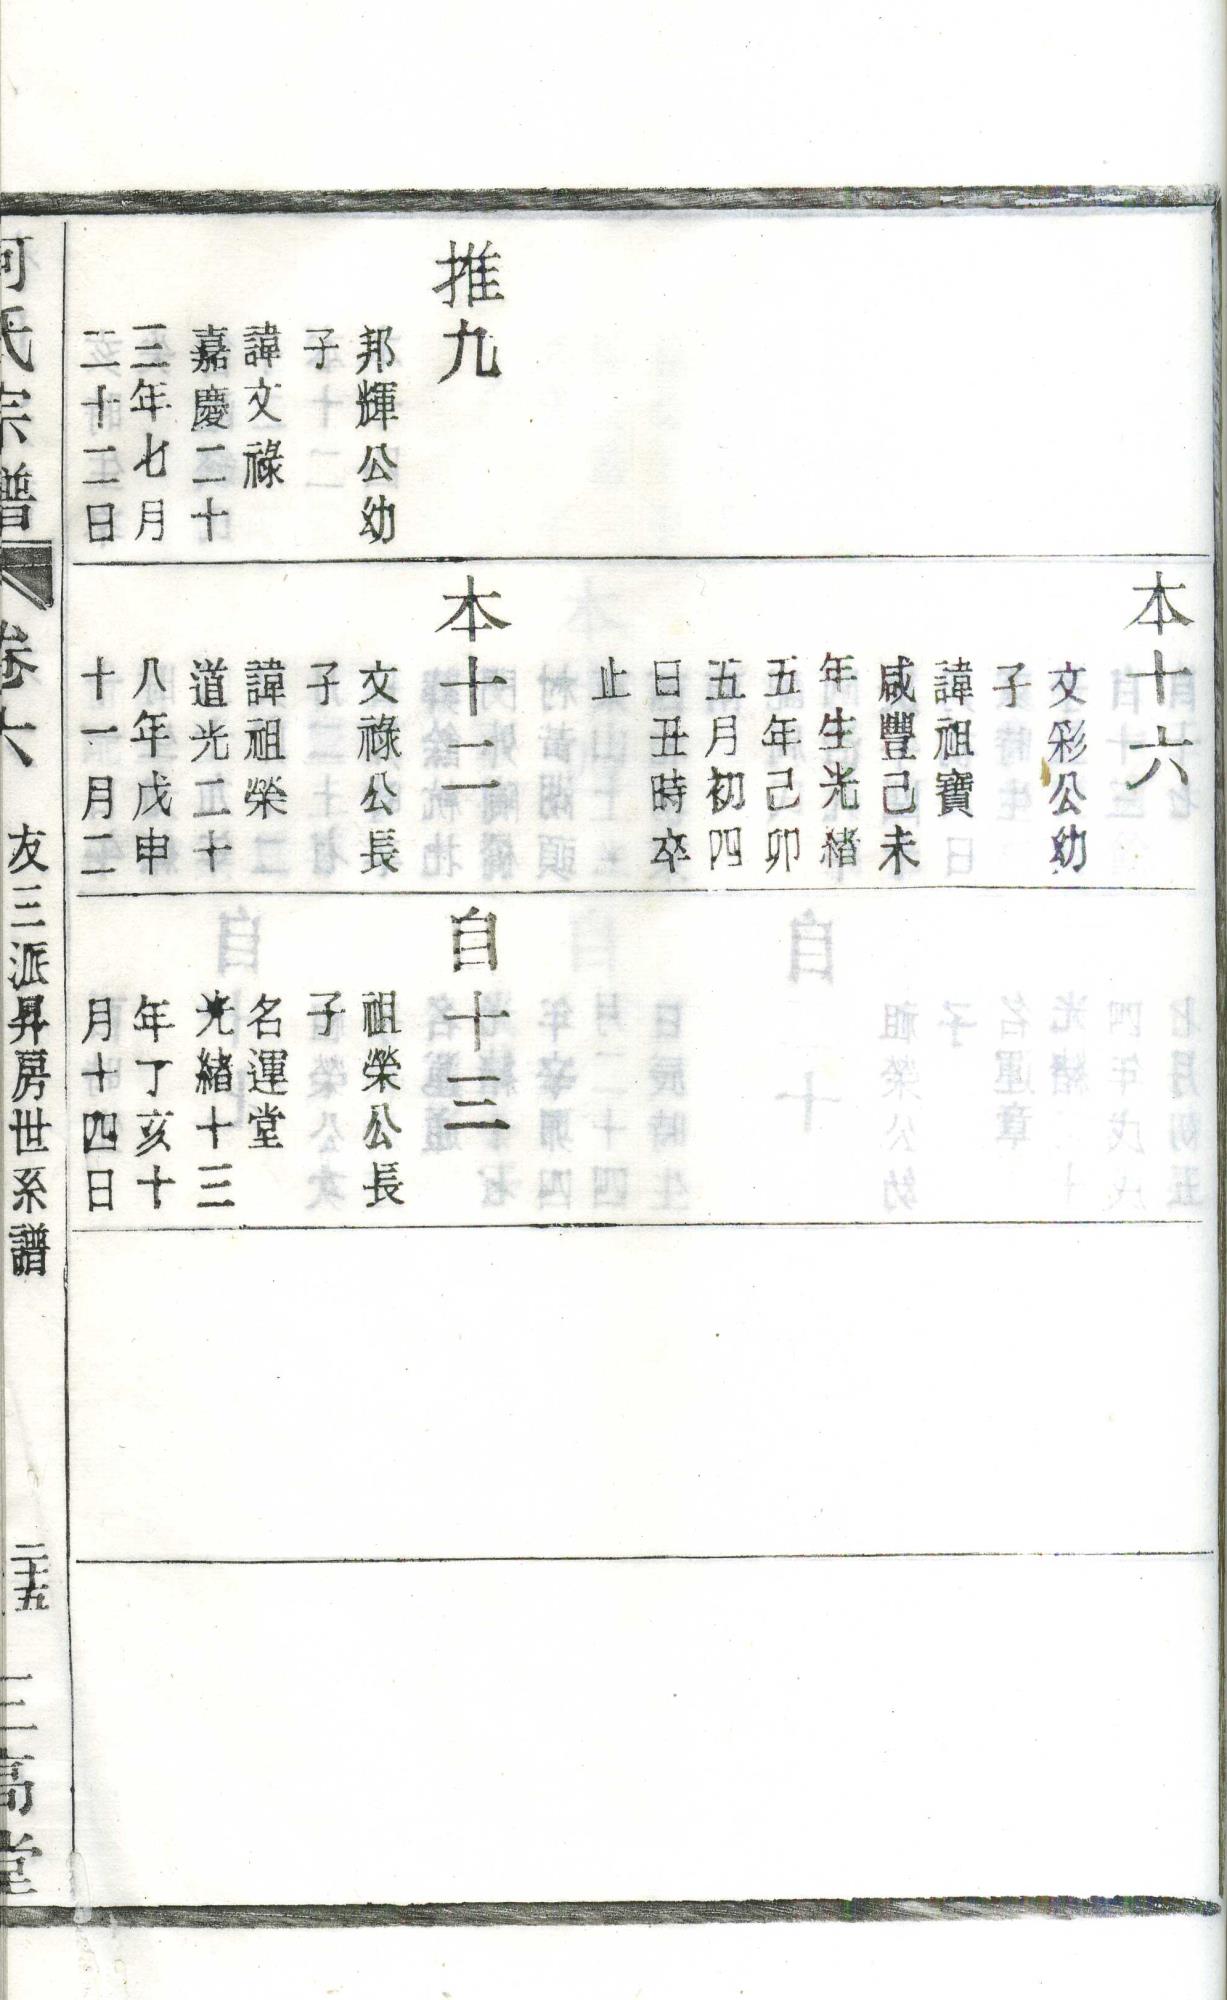 推九
邦輝公幼
子
諱文祿
嘉慶二十
三年七月
二十二日
本十六
文彩公幼
子
諱祖寶
咸豐己未
年生光緒
五年己卯
五月初四
日丑時卒
止
本十二
文祿公長
子
諱祖榮
道光二十
八年戊申
十一月二
自十三
祖榮公長
子
名運堂
光緒十三
年丁亥十
月十四日
何氏宗譜
卷六
友三派昇房世系譜
二十五
三高堂